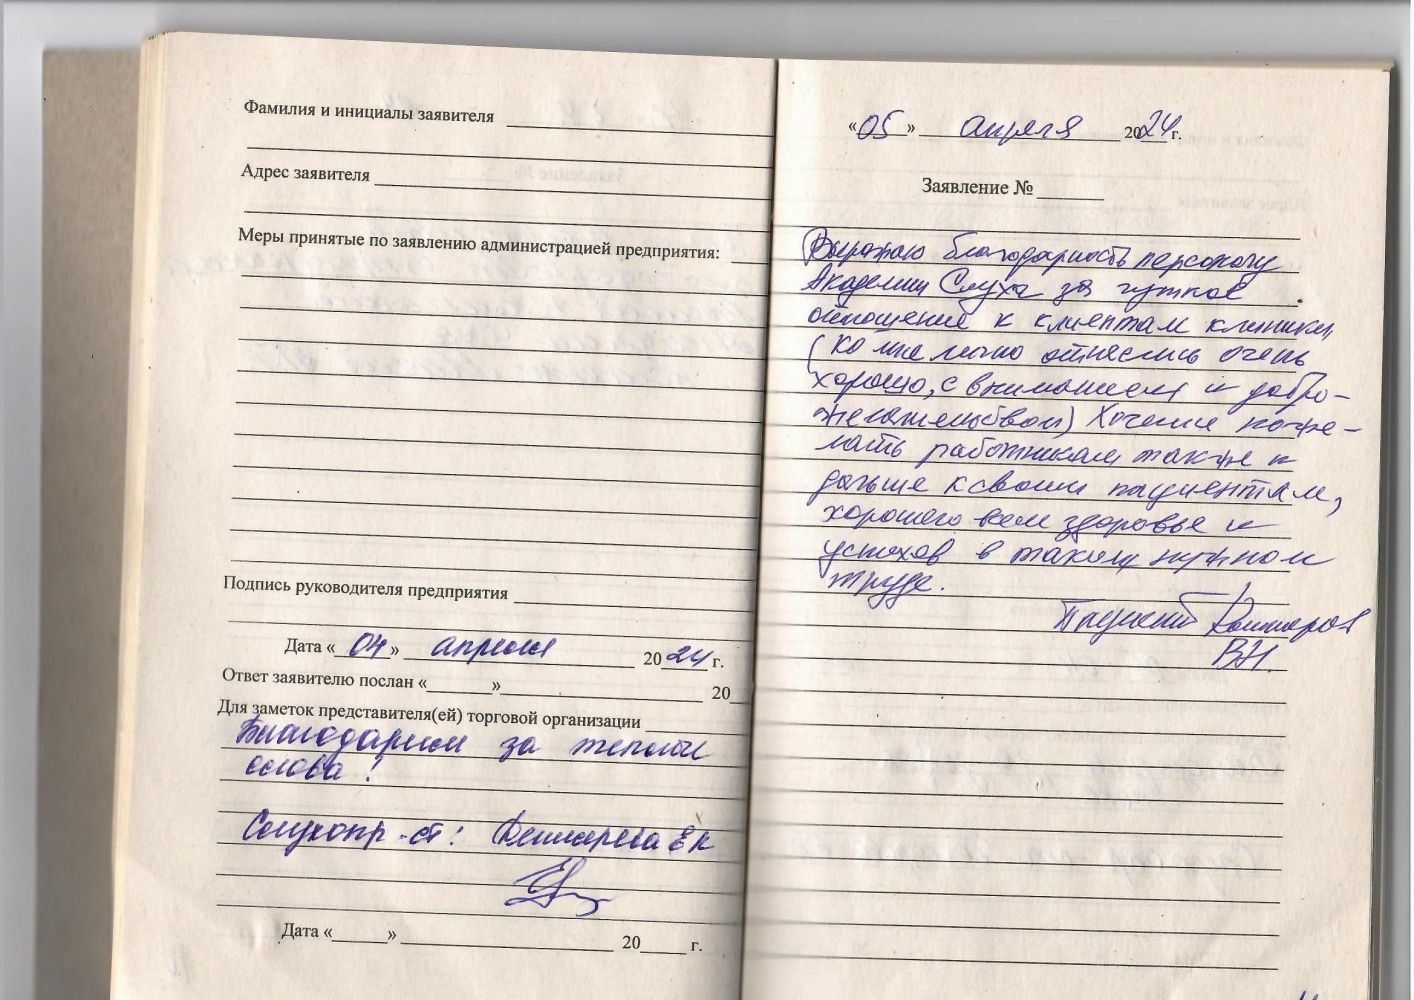 Фамилия и инициалы заявителя
Адрес заявителя
Меры принятые по заявлению администрацией предприятия:
Подпись руководителя предприятия
Дата «04» апреля 2024 г.
Ответ заявителю послан «      »      20
Для заметок представителя(ей) торговой организации
Благодарим за теплые
слова!
Слухопр-ст:
Дата «      »      20      г.
«05» апреля 2024 г.
Заявление №
Выражаю благодарность персоналу
Академии Слуха за чуткое
отношение к клиентам клиники,
(ко мне лично отнеслись очень
хорошо, с вниманием и добро-
желательством) Хочется поже-
лать работникам также и
дальше к своим пациентам,
хорошего всем здоровье и
успехов в таком нужном
труде.
Пациент
В.Н.